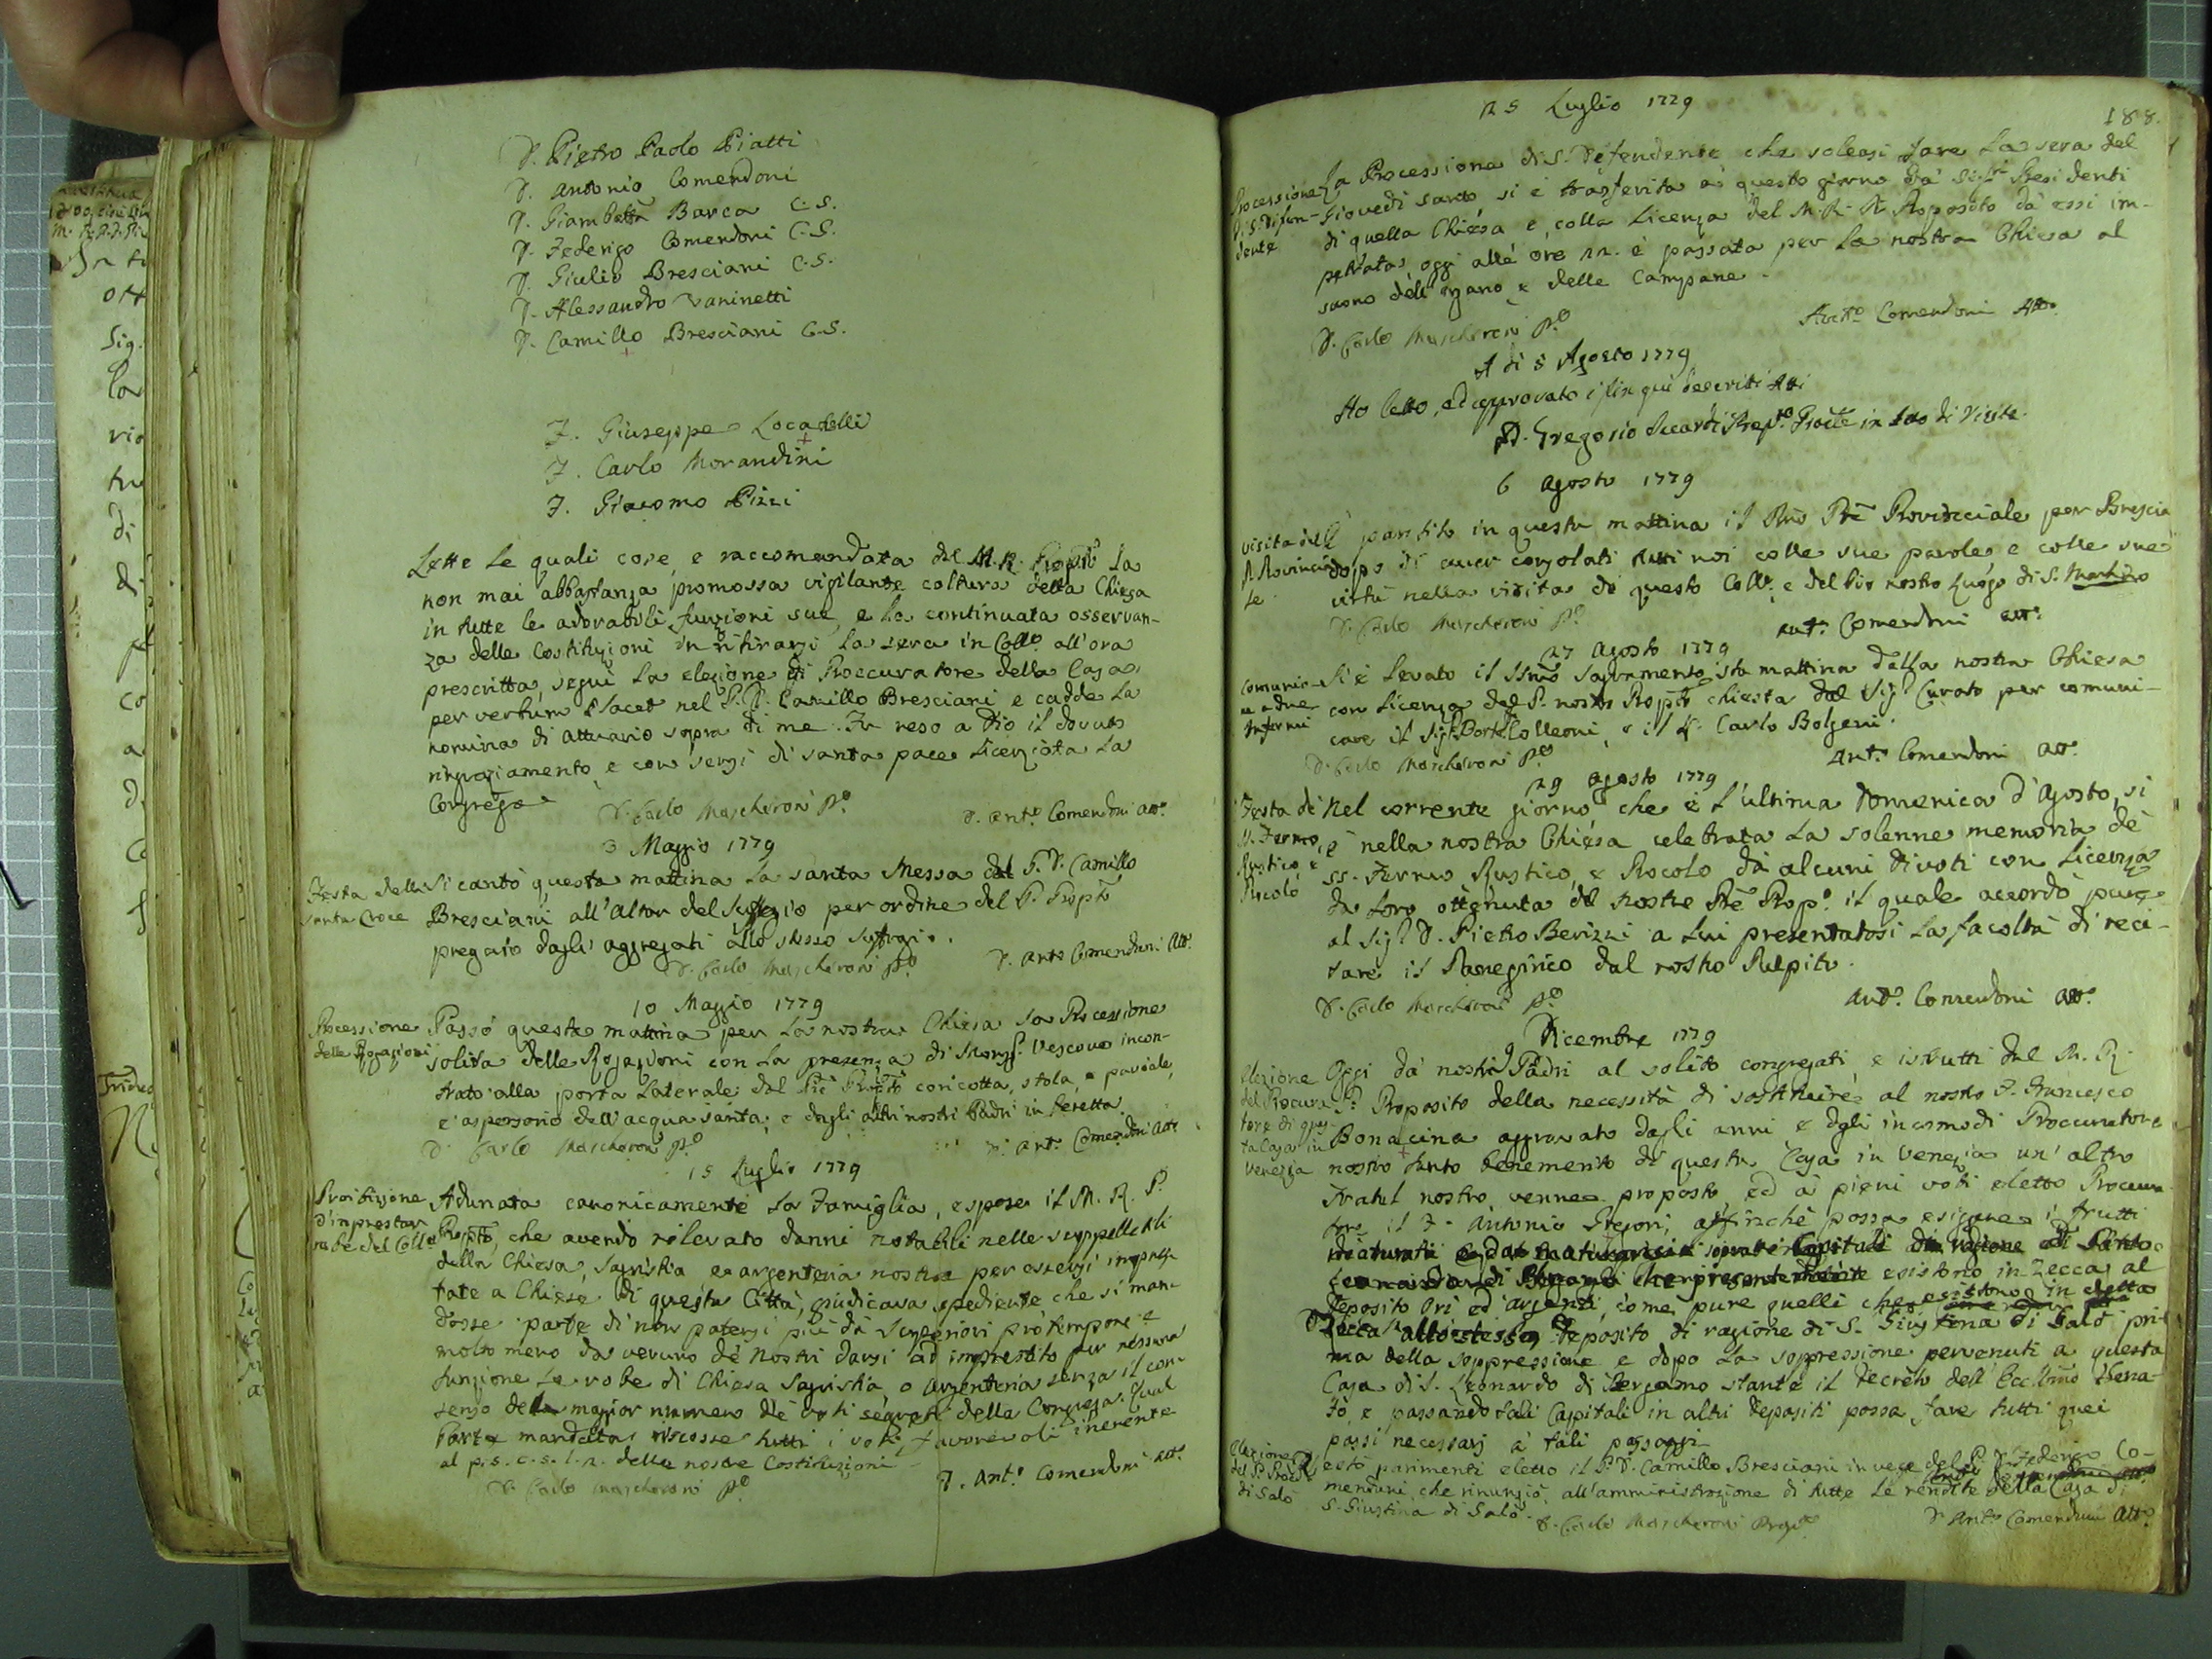 D. Pietro Paolo Piatti
D. Antonio Comendoni
D. Giambatta Barca C. S.
D. Federigo Comendoni C. S.
D. Giulio Bresciani C. S.
D. Alessandro Vaninetti
D. Camillo Bresciani C. S.
F. Giuseppe Locadelli
F. Carlo Morandini
F. Giacomo Pizzi
Lette le quali cose, e raccomandata dal M. R. Propto la
non mai abbastanza promossa vigilante coltura della Chiesa
in tutte le adorabili funzioni sue, e la continuata osservan-
za delle Costituzioni in ritirarsi la sera in Collo all'ora
prescritta, seguì la elezione di Proccuratore della Casa
per verbum Placet nel P. D. Camillo Bresciani, e cadde la
nomina di Attuario sopra di me. Fu reso a Dio il dovuto
ringraziamento, e con sensi di santa pace licenziata la
Congrega
D. Carlo Mascheroni Po
D. Anto Comendoni Atto
3 Maggio 1779
Festa della
Santa Croce
Si cantò questa mattina la santa Messa dal P. D. Camillo
Bresciani all'Altar del Suffragio per ordine del P. Propto
pregato dagli aggregati allo stesso suffragio.
D. Carlo Mascheroni Po
D. Anto Comendoni Atto
10 Maggio 1779
Processione
delle Rogazioni
Passò questa mattina per la nostra Chiesa la Processione
solita delle Rogazioni con la presenza di Monsr Vescovo incon-
trato alla porta laterale dal Pre Propto con cotta, stola, e piviale,
e aspersorio dell'acqua santa; e dagli altri nostri Padri in beretta.
D. Carlo Mascheroni Po
D. Anto Comendoni Atto
15 Luglio 1779
Proibizione
d'imprestar
robe del Collo
Adunata canonicamente la Famiglia, espose il M. R. P.
Propto, che avendo rilevato danni notabili nelle suppellettili
della Chiesa, Sagristia, e argenteria nostra per essersi impres-
tate a Chiese di questa Città, giudicava spediente che si man-
dasse parte di non potersi più da Superiori pro tempore, e
molto meno da veruno de' Nostri darsi ad imprestito per nessuna
funzione le robe di Chiesa Sagristia, o Argenteria senza il con-
senso della maggior numero de' voti segreti della Congrega. Qual
Parte mandata riscosse tutti i voti favorevoli inerente
al p. s. c. s. l. n. delle nostre Costituzioni
D. Carlo Mascheroni Po
D. Anto Comendoni Atto
188.
25 Luglio 1779
Processione
di S. Defen-
dente
La Processione di S. Defendente che soleasi fare la sera del
Giovedì santo si è trasferita a questo giorno da' Sigri Presidenti
di quella Chiesa e, colla licenza del M. R. P. Proposito da essi im-
petrata, oggi alle ore 22. è passata per la nostra Chiesa al
suono dell'organo, e delle Campane.
D. Carlo Mascheroni Po
Anto Comendoni Atto
A dì 5 Agosto 1779
Ho letto, ed approvato i fin qui descritti Atti
D. Gregorio Prepto Prole in Atto di Visita.
6 Agosto 1779
Visita del
P. Provincia-
le
È partito in questa mattina il Rmo Pre Provinciale per Brescia
dopo di aver consolati tutti noi colle sue parole, e colle sue
virtù nella visita di questo Collo, e del Pio nostro Luogo di S. Martino
D. Carlo Mascheroni Po
Anto Comendoni Atto
27 Agosto 1779
Comunio-
ne a due
Infermi
Si è levato il Ssmo Sagramento sta mattina dalla nostra Chiesa
con licenza del P. nostro Propto chiesta dal Sigr Curato per comuni-
care il Sigr Bort. Colleoni, e il Carlo Bolgeni.
D. Carlo Mascheroni Po
Anto Comendoni Atto
29 Agosto 1779
Festa de'
SS. Fermo,
Rustico, e
Procolo
Nel corrente giorno che è l'ultima Domenica d'Agosto, si
è nella nostra Chiesa celebrata la solenne memoria de'
SS. Fermo Rustico, e Procolo da alcuni divoti con licenza
da loro ottenuta dal nostro Pre Propo. il quale accordò pure
al Sigr D. Pietro Berizzi a lui presentatosi la facoltà di reci-
tare il Panegirico dal nostro Pulpito.
D. Carlo Mascheroni Po
Anto Comendoni Atto
9 Dicembre 1779
Elezione
del Procura-
tore di ques-
ta Casa in
Venezia
Oggi da nostri Padri al solito congregati, e istrutti dal M. R.
P. Proposito della necessità di sostituire al nostro F. Francesco
Bonacina aggravato dagli anni e dagli incomodi Proccuratore
nostro tanto benemerito di questa Casa in Venezia un' altro
Fratel nostro, venne proposto, ed a pieni voti eletto Proccura-
tore il F. Antonio Gregori, affinchè possa esigere i frutti
maturati e da maturarsi sopra i Capitali di ragione di Santo
Leonardo di Bergamo che presentemente esistono in Zecca al
Deposito Ori ed argenti, come pure quelli che esistono in detta
Zecca allo stesso Deposito di ragione di S. Giustina di Salò pri-
ma della soppressione e dopo la soppressione pervenuti a questa
Casa di S. Leonardo di Bergamo stante il Decreto dell' Eccllmo Sena-
to, e passando tali Capitali in altri Depositi possa fare tutti quei
passi necessarj a tali passaggi
Elezione
del P. Proccu
di Salò
Restò parimenti eletto il P. D. Camillo Bresciani in vece del P. D. Federigo Co-
menduni, che rinunziò, all'amministrazione di tutte le rendite della Casa di
S. Giustina di Salò.
D. Carlo Mascheroni Propto
D. Anto Comenduni Atto